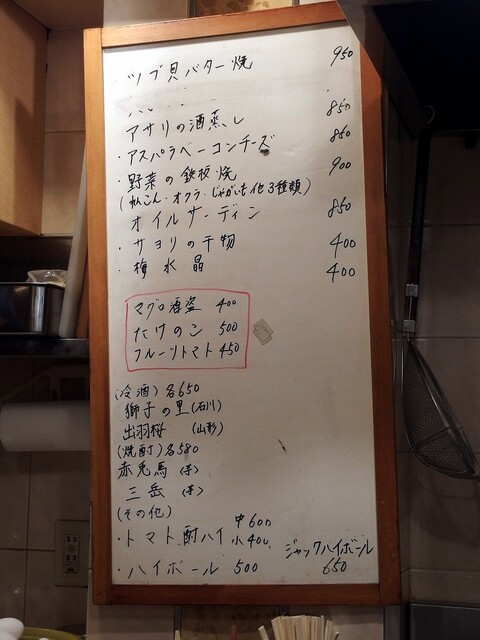 ・ツブ貝バター焼 950
アサリの酒蒸し 850
・アスパラベーコンチーズ 850
・野菜の鉄板焼 900
(れんこん・オクラ・じゃがいも他3種類)
オイルサーディン 850
・サヨリの干物 400
・梅水晶 400
マグロ酒盗 400
たけのこ 500
フルーツトマト 450
(冷酒) 各650
獅子の里 (石川)
出羽桜 (山形)
(焼酎) 各580
赤兎馬 (芋)
三岳 (芋)
(その他)
・トマト酎ハイ 中600 小400
ジャックハイボール 650
・ハイボール 500